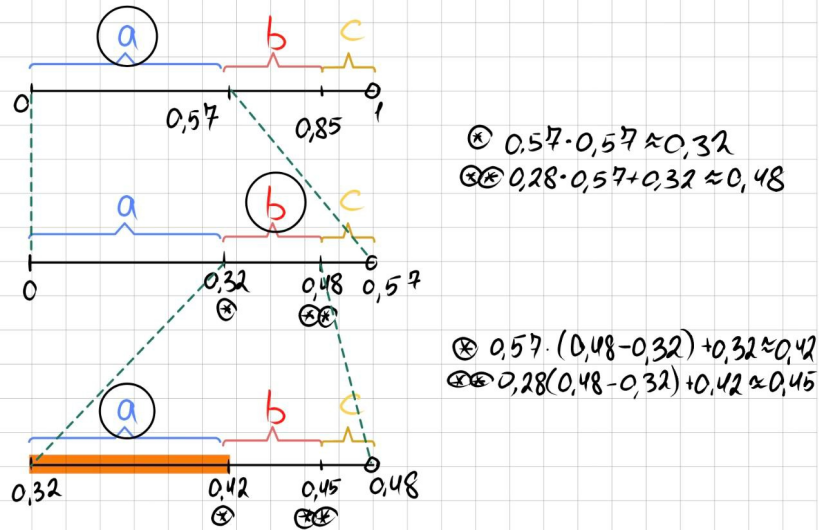 a b c
0 0,57 0,85 1
⊛ 0,57·0,57≈0,32
⊛⊛ 0,28·0,57+0,32≈0,48
a b c
0 0,32 0,48 0,57
⊛ ⊛⊛
⊛ 0,57·(0,48-0,32)+0,32≈0,42
⊛⊛ 0,28(0,48-0,32)+0,42≈0,45
a b c
0,32 0,42 0,45 0,48
⊛ ⊛⊛